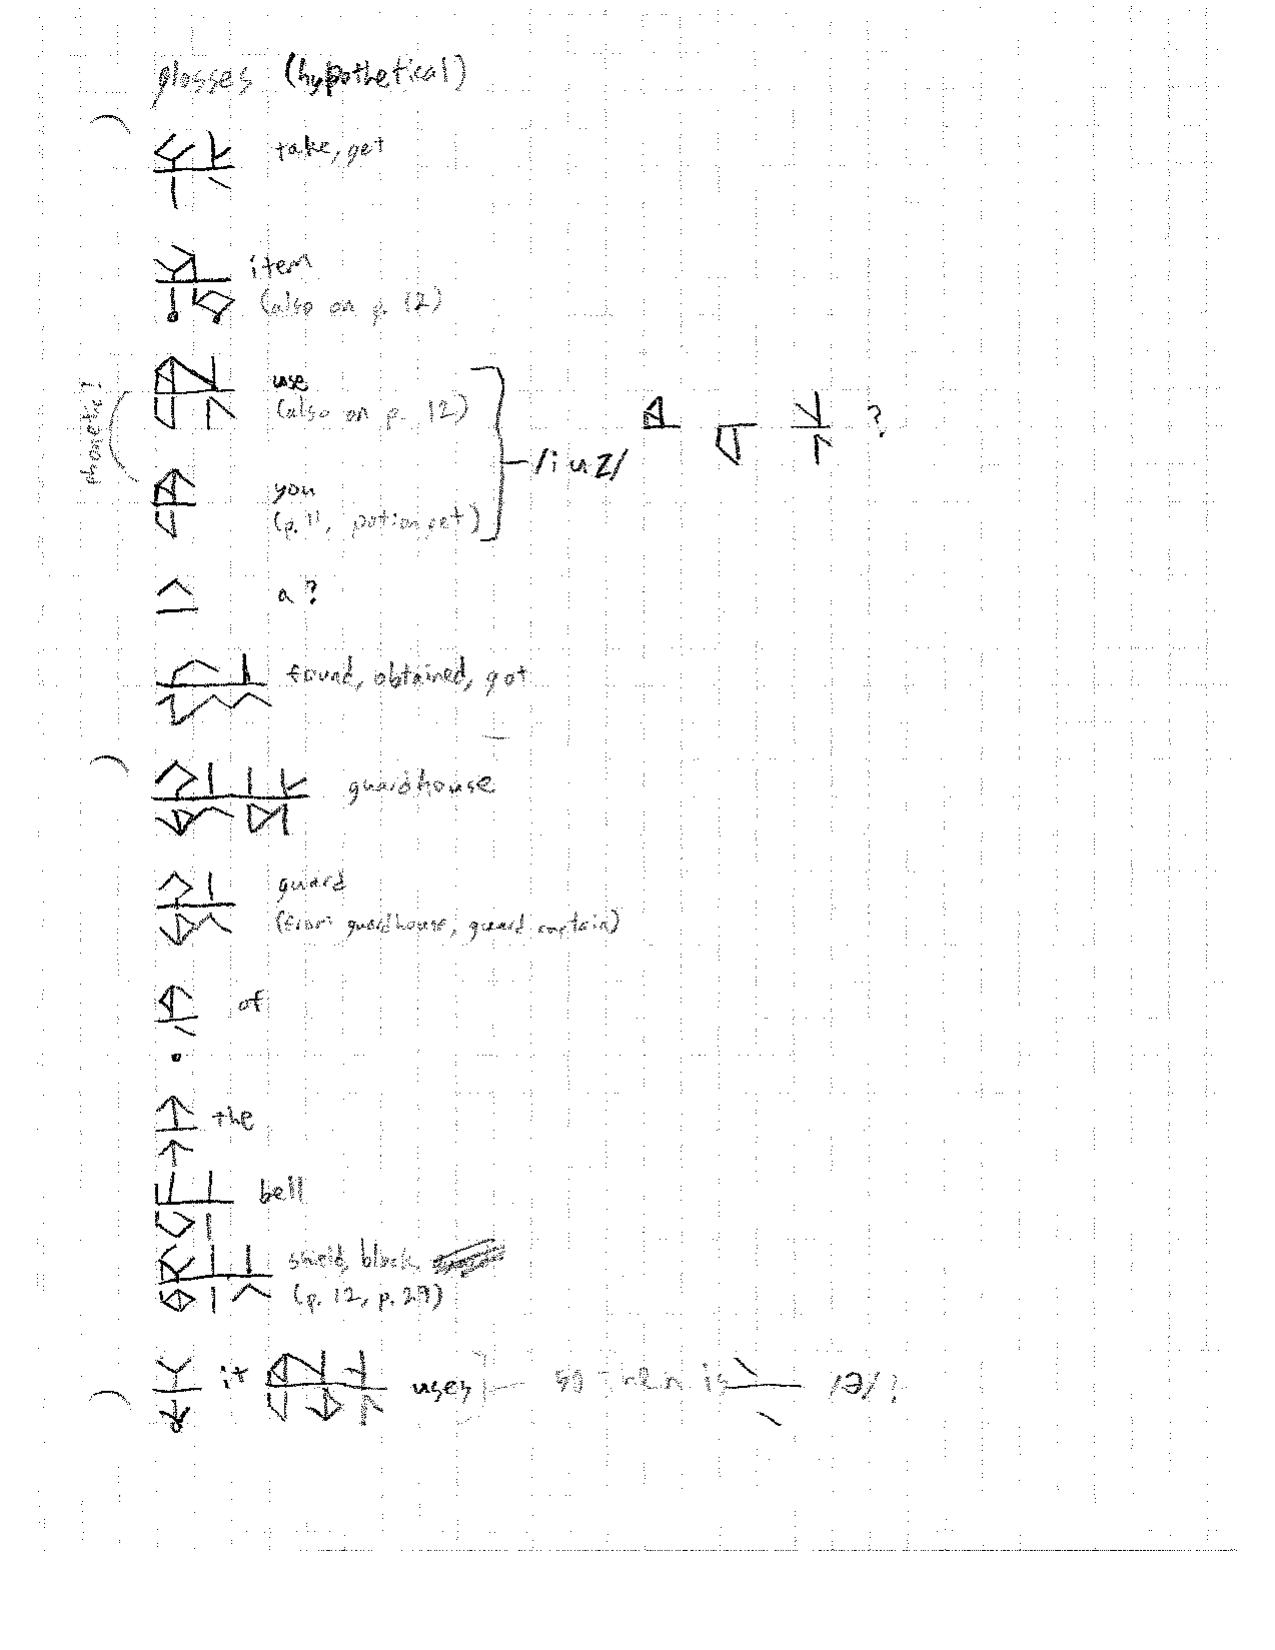 glosses (hypothetical)
take, get
item
(also on p. 12)
phonetic!
use
(also on p. 12)
/i u z/ ?
you
(p. 11, potion set)
a?
found, obtained, got
guardhouse
guard
(from guardhouse, guard captain)
of
the
bell
shield, block,
(p. 12, p. 29)
it uses so then is /ə/?